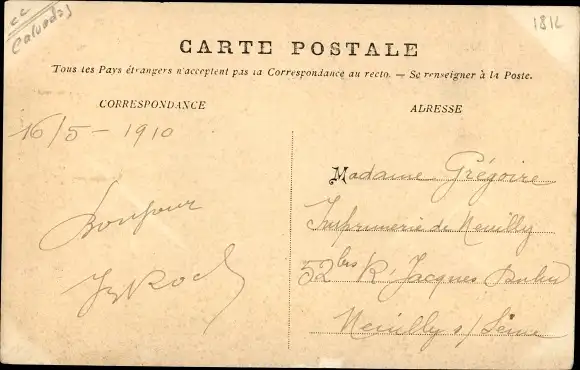 cc
Calvados
1812
CARTE POSTALE
Tous les Pays étrangers n'acceptent pas la Correspondance au recto. — Se renseigner à la Poste.
CORRESPONDANCE
ADRESSE
16/5 - 1910
Bonjour
Madame Grégoire
Imprimerie de Neuilly
52bis R. Jacques Dulud
Neuilly s/ Seine